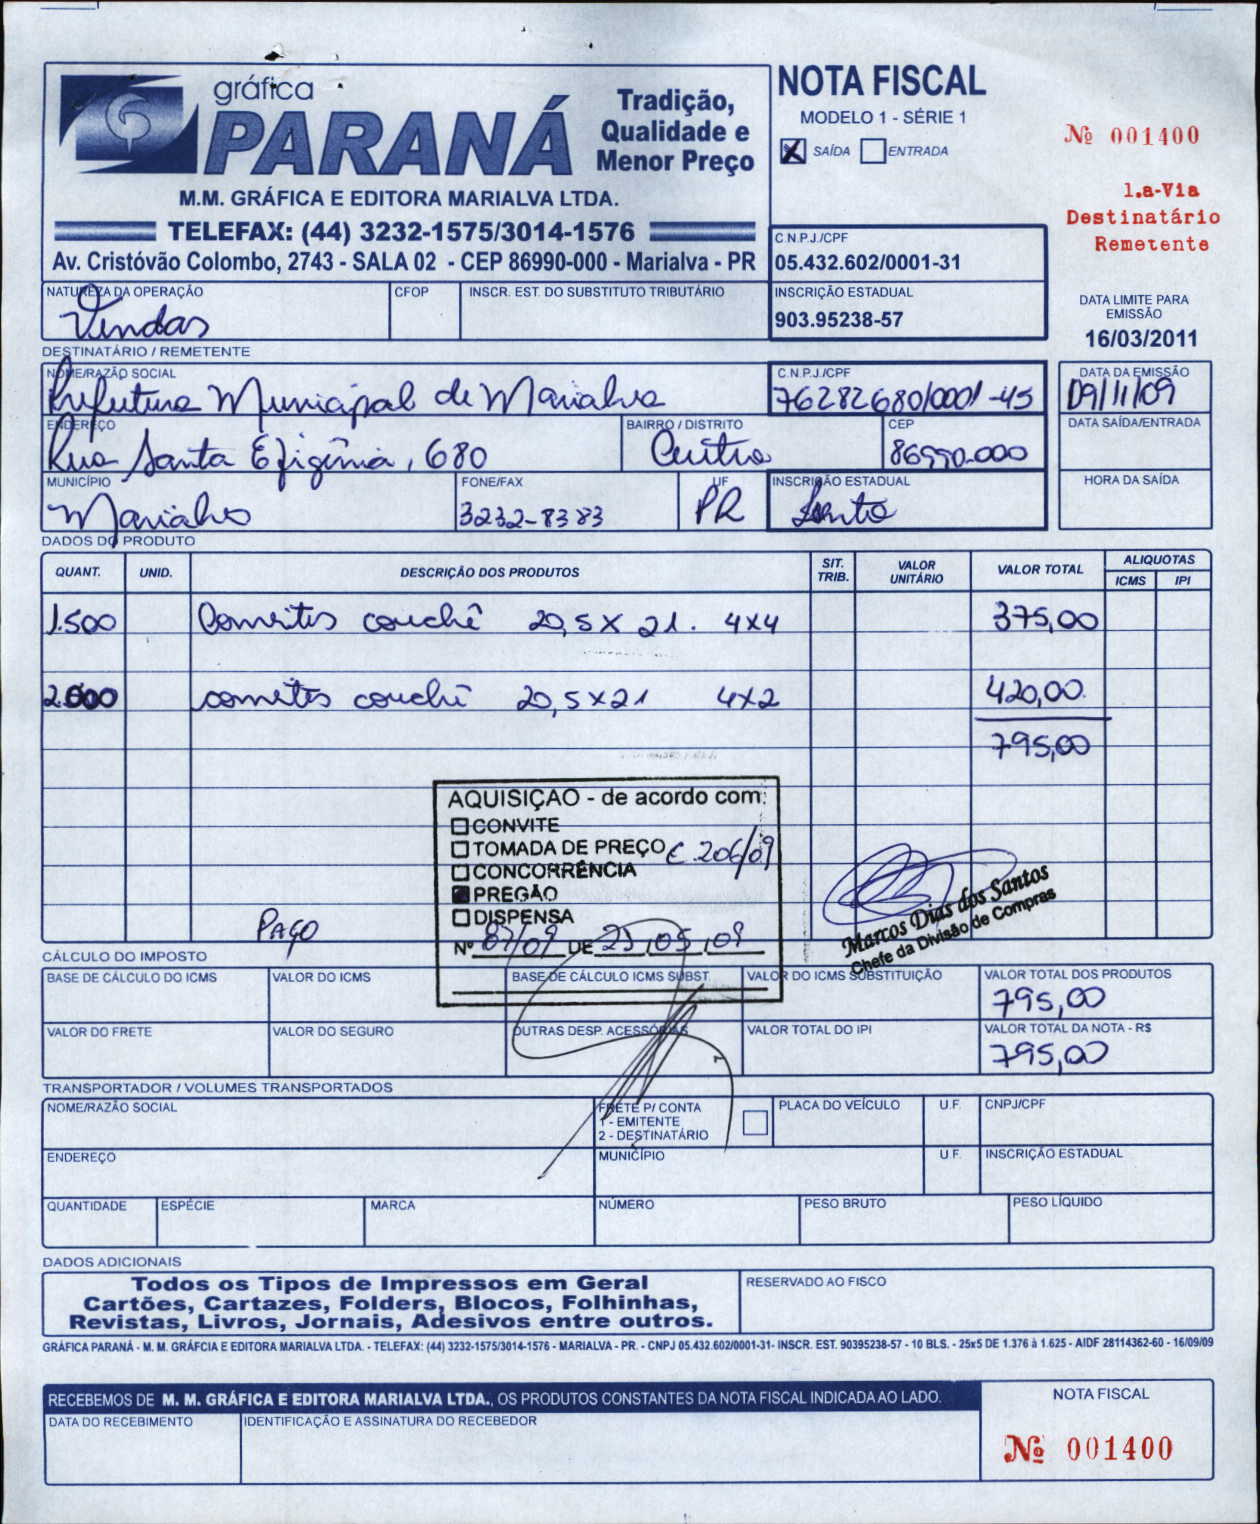 gráfica
PARANÁ
Tradição,
Qualidade e
Menor Preço
M.M. GRÁFICA E EDITORA MARIALVA LTDA.
TELEFAX: (44) 3232-1575/3014-1576
Av. Cristóvão Colombo, 2743 - SALA 02 - CEP 86990-000 - Marialva - PR
NOTA FISCAL
MODELO 1 - SÉRIE 1
X SAÍDA ENTRADA
Nº 001400
1.a-Via
Destinatário
Remetente
C.N.P.J./CPF
05.432.602/0001-31
NATUREZA DA OPERAÇÃO CFOP INSCR. EST. DO SUBSTITUTO TRIBUTÁRIO INSCRIÇÃO ESTADUAL
Vendas 903.95238-57
DATA LIMITE PARA
EMISSÃO
16/03/2011
DESTINATÁRIO / REMETENTE
NOME/RAZÃO SOCIAL C.N.P.J./CPF DATA DA EMISSÃO
Prefeitura Municipal de Marialva 76282680/0001-45 09/11/09
ENDEREÇO BAIRRO / DISTRITO CEP DATA SAÍDA/ENTRADA
Rua Santa Efigênia, 680 Centro 86990-000
MUNICÍPIO FONE/FAX UF INSCRIÇÃO ESTADUAL HORA DA SAÍDA
Marialva 3232-8383 PR
DADOS DO PRODUTO
QUANT. UNID. DESCRIÇÃO DOS PRODUTOS SIT. TRIB. VALOR UNITÁRIO VALOR TOTAL ALIQUOTAS
ICMS IPI
1.500 couchê 20,5 X 21. 4x4 375,00
2.000 couchê 20,5 x 21 4x2 420,00
795,00
AQUISIÇÃO - de acordo com:
CONVITE
TOMADA DE PREÇO C 206/09
CONCORRÊNCIA
PREGÃO
DISPENSA
Nº 87/09 DE 25/05/09
PAGO
Marcos Dias dos Santos
Chefe da Divisão de Compras
CÁLCULO DO IMPOSTO
BASE DE CÁLCULO DO ICMS VALOR DO ICMS BASE DE CÁLCULO ICMS SUBST. VALOR DO ICMS SUBSTITUIÇÃO VALOR TOTAL DOS PRODUTOS
795,00
VALOR DO FRETE VALOR DO SEGURO OUTRAS DESP. ACESSÓRIAS VALOR TOTAL DO IPI VALOR TOTAL DA NOTA - R$
795,00
TRANSPORTADOR / VOLUMES TRANSPORTADOS
NOME/RAZÃO SOCIAL FRETE P/ CONTA PLACA DO VEÍCULO U.F. CNPJ/CPF
1 - EMITENTE
2 - DESTINATÁRIO
ENDEREÇO MUNICÍPIO U.F. INSCRIÇÃO ESTADUAL
QUANTIDADE ESPÉCIE MARCA NÚMERO PESO BRUTO PESO LÍQUIDO
DADOS ADICIONAIS
Todos os Tipos de Impressos em Geral
Cartões, Cartazes, Folders, Blocos, Folhinhas,
Revistas, Livros, Jornais, Adesivos entre outros.
RESERVADO AO FISCO
GRÁFICA PARANÁ - M. M. GRÁFCIA E EDITORA MARIALVA LTDA. - TELEFAX: (44) 3232-1575/3014-1576 - MARIALVA - PR. - CNPJ 05.432.602/0001-31- INSCR. EST. 90395238-57 - 10 BLS. - 25x5 DE 1.376 à 1.625 - AIDF 28114362-60 - 16/09/09
RECEBEMOS DE M. M. GRÁFICA E EDITORA MARIALVA LTDA., OS PRODUTOS CONSTANTES DA NOTA FISCAL INDICADA AO LADO.
DATA DO RECEBIMENTO IDENTIFICAÇÃO E ASSINATURA DO RECEBEDOR
NOTA FISCAL
Nº 001400